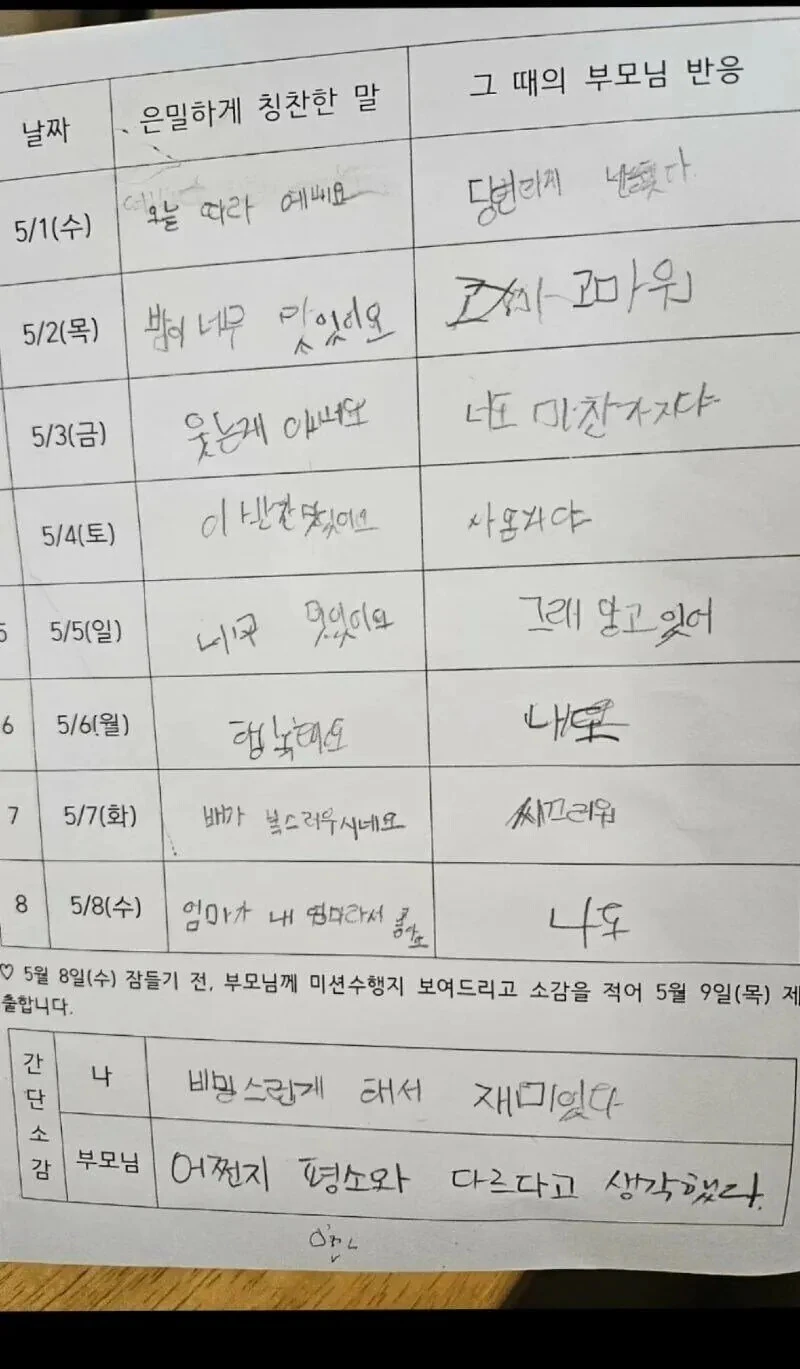 날짜 은밀하게 칭찬한 말 그 때의 부모님 반응
5/1(수) 오늘 따라 예뻐요
5/2(목) 밥이 너무 맛있어요 고마워
5/3(금) 웃는게 너도 마찬가지야
5/4(토) 이 반찬 맛있어요
5 5/5(일) 맛있어요 그래 알고 있어
6 5/6(월) 행복해요 내도
7 5/7(화) 배가 복스러우시네요 씨끄러워
8 5/8(수) 엄마가 내 엄마라서 좋아요 나도
♡ 5월 8일(수) 잠들기 전, 부모님께 미션수행지 보여드리고 소감을 적어 5월 9일(목) 제
출합니다.
간단소감
나 비밀스럽게 해서 재미있다
부모님 어쩐지 평소와 다르다고 생각했다.